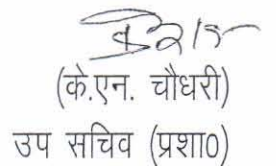 (के.एन. चौधरी)
उप सचिव (प्रशा0)